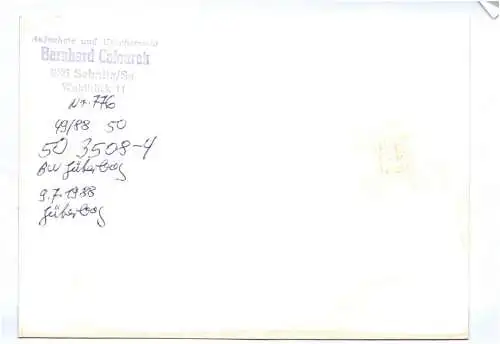 Aufnahme und
Bernhard
Sebnitz/Sa
Waldblick 11
Nr. 776
49/88 50
50 3508-4
BW Jüterbog
9.7.1988
Jüterbog